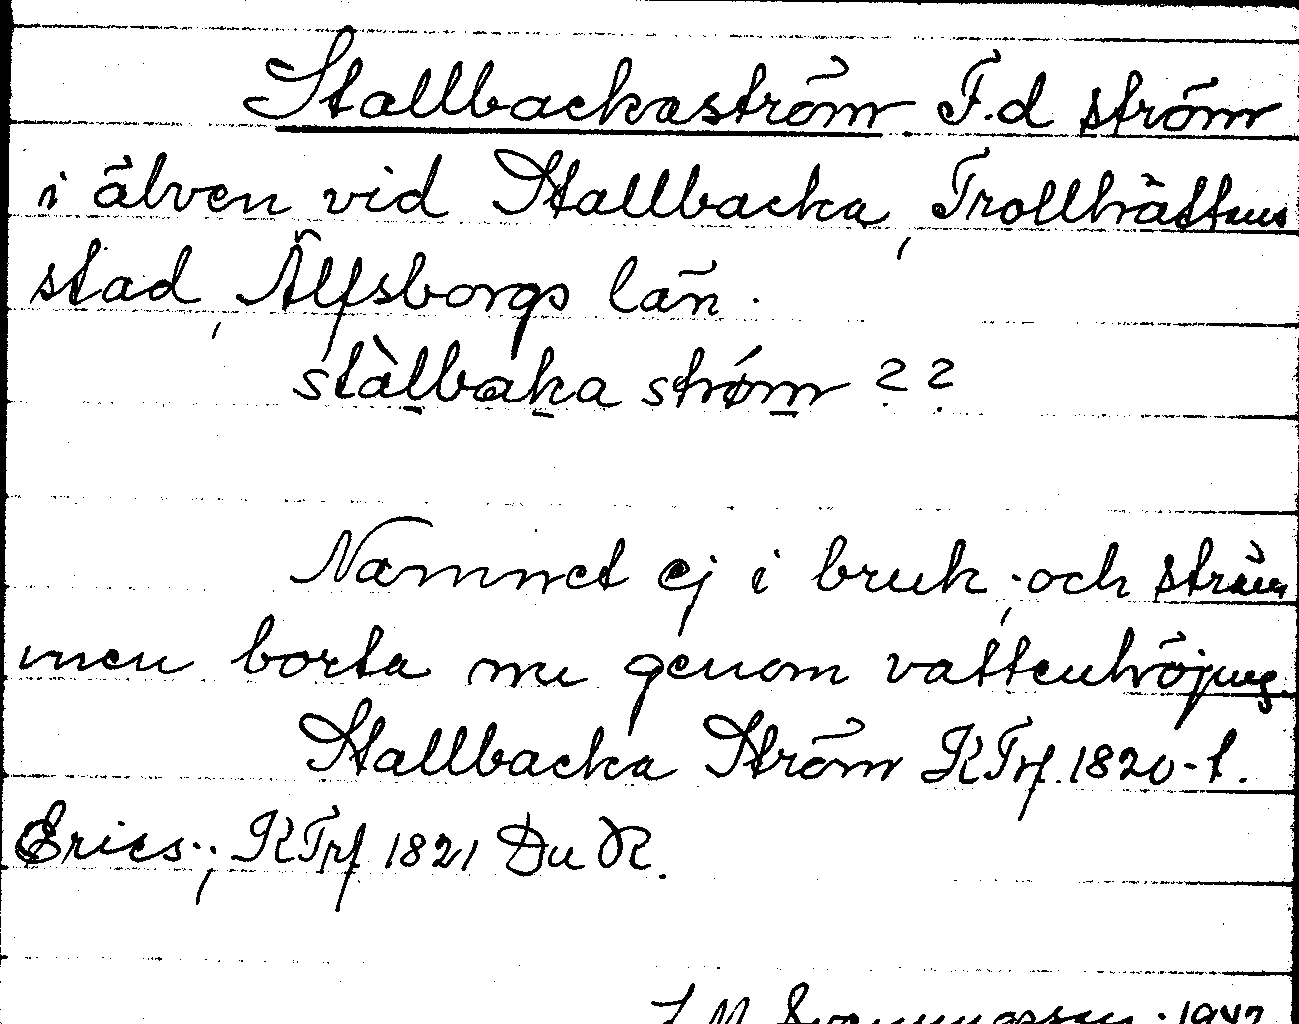 Stallbackaström F.d ström
i älven vid Stallbacka, Trollhättans
stad, Älfsborgs län.
stàlbaka strøm ??
Namnet ej i bruk, och ström
men borta nu genom vattenhöjning.
Stallbacka Ström KTrf. 1820-t.
Erics.; KTrf 1821 Du R.
1942